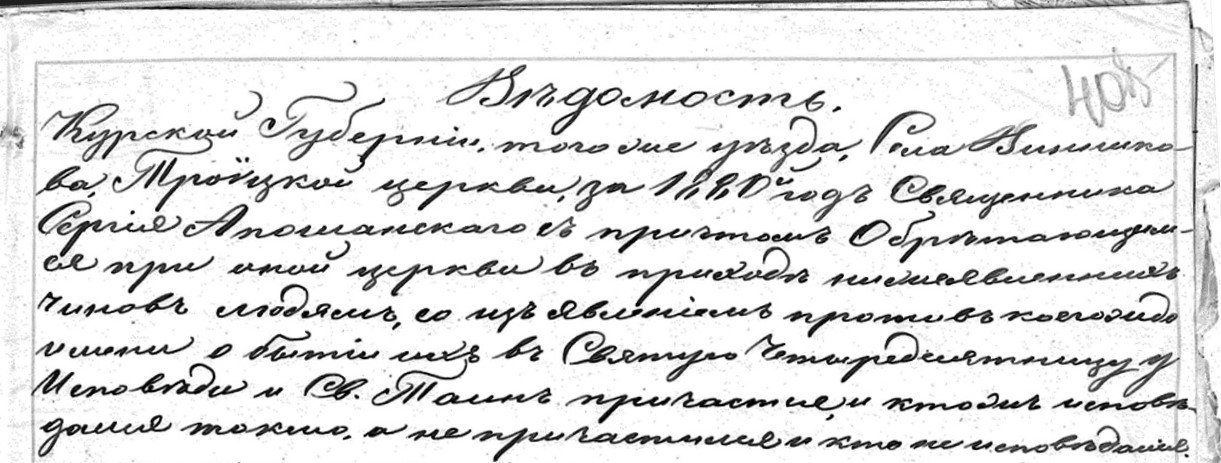 Вѣдомость.
405
Курской Губерніи, того же уѣзда, Села Виннико-
ва, Троицкой церкви, за 1880й годъ Священника
Сергія Апошанскаго съ причтомъ Обрѣтающим-
ся при оной церкви въ приходѣ нижеявленныхъ
чиновъ людямъ, со изъявленіемъ противъ коегождо
имени о бытіи ихъ въ Святую Четыредесятницу у
Исповѣди и Св. Таинъ причастія, и ктожъ исповѣ-
дался токмо, а не причастился и кто не исповѣдался.